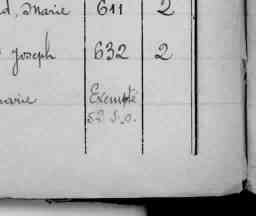 d, Marie 611 2
Joseph 632 2
Marie Exempté
52 S.O.